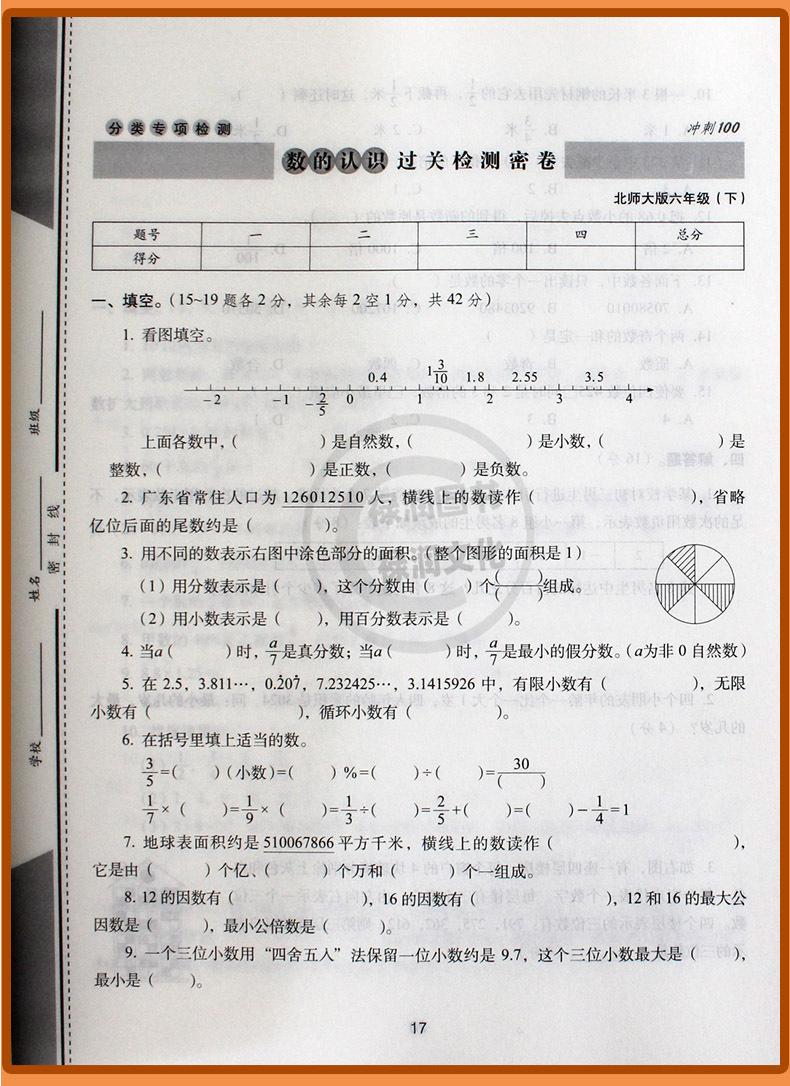 分类专项检测
冲刺100
数的认识过关检测密卷
北师大版六年级（下）
题号 一 二 三 四 总分
得分
一、填空。（15~19题各2分，其余每2空1分，共42分）
1. 看图填空。
0.4 1 3/10 1.8 2.55 3.5
-2 -1 -2/5 0 1 2 3 4
上面各数中，（ ）是自然数，（ ）是小数，（ ）是
整数，（ ）是正数，（ ）是负数。
2. 广东省常住人口为 126012510 人，横线上的数读作（ ），省略
亿位后面的尾数约是（ ）。
3. 用不同的数表示右图中涂色部分的面积。（整个图形的面积是1）
（1）用分数表示是（ ），这个分数由（ ）个( )/( )组成。
（2）用小数表示是（ ），用百分数表示是（ ）。
4. 当a（ ）时，a/7是真分数；当a（ ）时，a/7是最小的假分数。（a为非0自然数）
5. 在 2.5，3.811…，0.2̇07̇，7.232425…，3.1415926 中，有限小数有（ ），无限
小数有（ ），循环小数有（ ）。
6. 在括号里填上适当的数。
3/5=( )（小数）=( )%=( )÷( )=30/( )
1/7×( )=1/9×( )=1/3÷( )=2/5+( )=( )-1/4=1
7. 地球表面积约是 510067866 平方千米，横线上的数读作（ ），
它是由（ ）个亿、（ ）个万和（ ）个一组成。
8. 12的因数有（ ），16的因数有（ ），12和16的最大公
因数是（ ），最小公倍数是（ ）。
9. 一个三位小数用“四舍五人”法保留一位小数约是9.7，这个三位小数最大是（ ），
最小是（ ）。
17
班级
姓名
学校
密封线
绿润图书
绿润文化